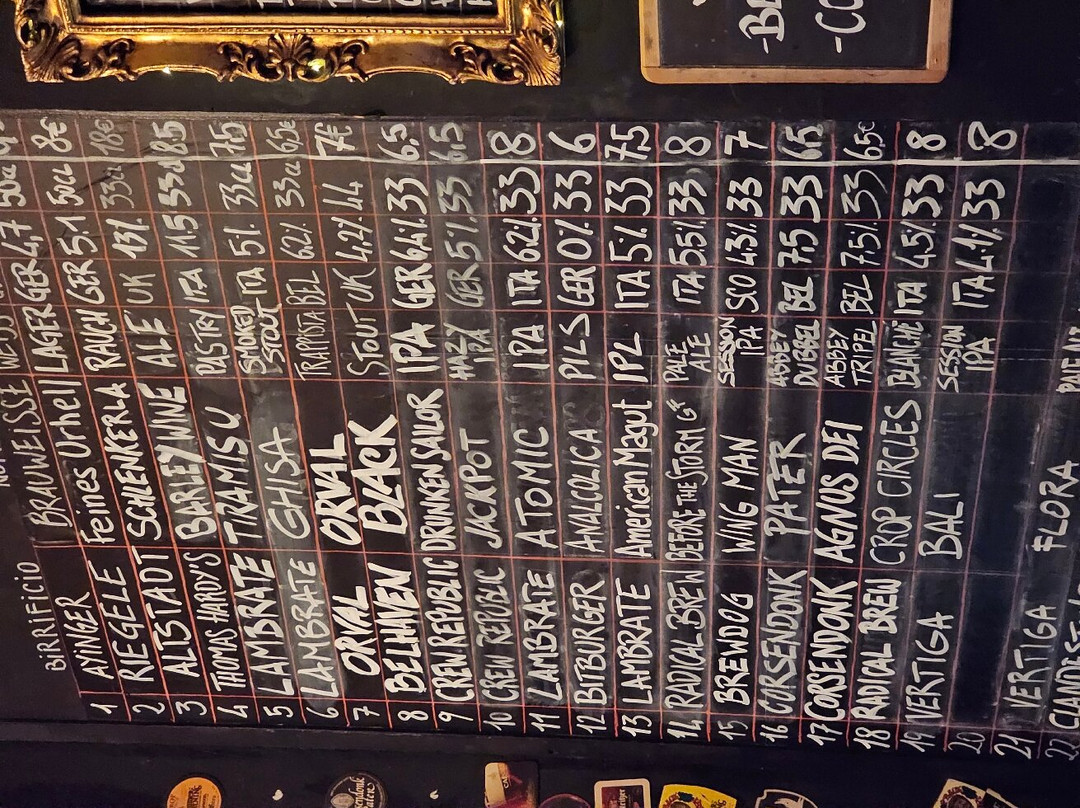 BIRRIFICIO
1 AYINGER BRAUWEISSE
2 RIEGELE Feines Urhell LAGER GER 4,7 50cc
3 ALTSTADT SCHLENKERLA RAUCH GER 5.1 50cc 8€
4 THOMAS HARDY'S BARLEY WINE ALE UK 13% 33cc 18€
5 LAMBRATE TIRAMISU PASTRY ITA 11.5 33cl 8.5
6 LAMBRATE GHISA SMOKED STOUT ITA 5% 33cc 7.5
7 ORVAL ORVAL TRAPPISTA BEL 6.2% 33cc 6.5€
8 BELHAVEN BLACK STOUT UK 4.2% 44 7€
9 CREW REPUBLIC DRUNKEN SAILOR IPA GER 6.4% 33 6.5
10 CREW REPUBLIC JACKPOT HAZY IPA GER 5% 33 6.5
11 LAMBRATE ATOMIC IPA ITA 6.2% 33 8
12 BITBURGER ANALCOLICA PILS GER 0% 33 6
13 LAMBRATE American Magut IPL ITA 5% 33 7.5
14 RADICAL BREW BEFORE THE STORM PALE ALE ITA 5.5% 33 8
15 BREWDOG WING MAN SESSION IPA SCO 4.3% 33 7
16 CORSENDONK PATER ABBEY DUBBEL BEL 7.5 33 6.5
17 CORSENDONK AGNUS DEI ABBEY TRIPEL BEL 7.5% 33 6.5€
18 RADICAL BREW CROP CIRCLES BLANCHE ITA 4.5% 33 8
19 VERTIGA BALI SESSION IPA ITA 4.1% 33 8
20
21 VERTIGA FLORA
22